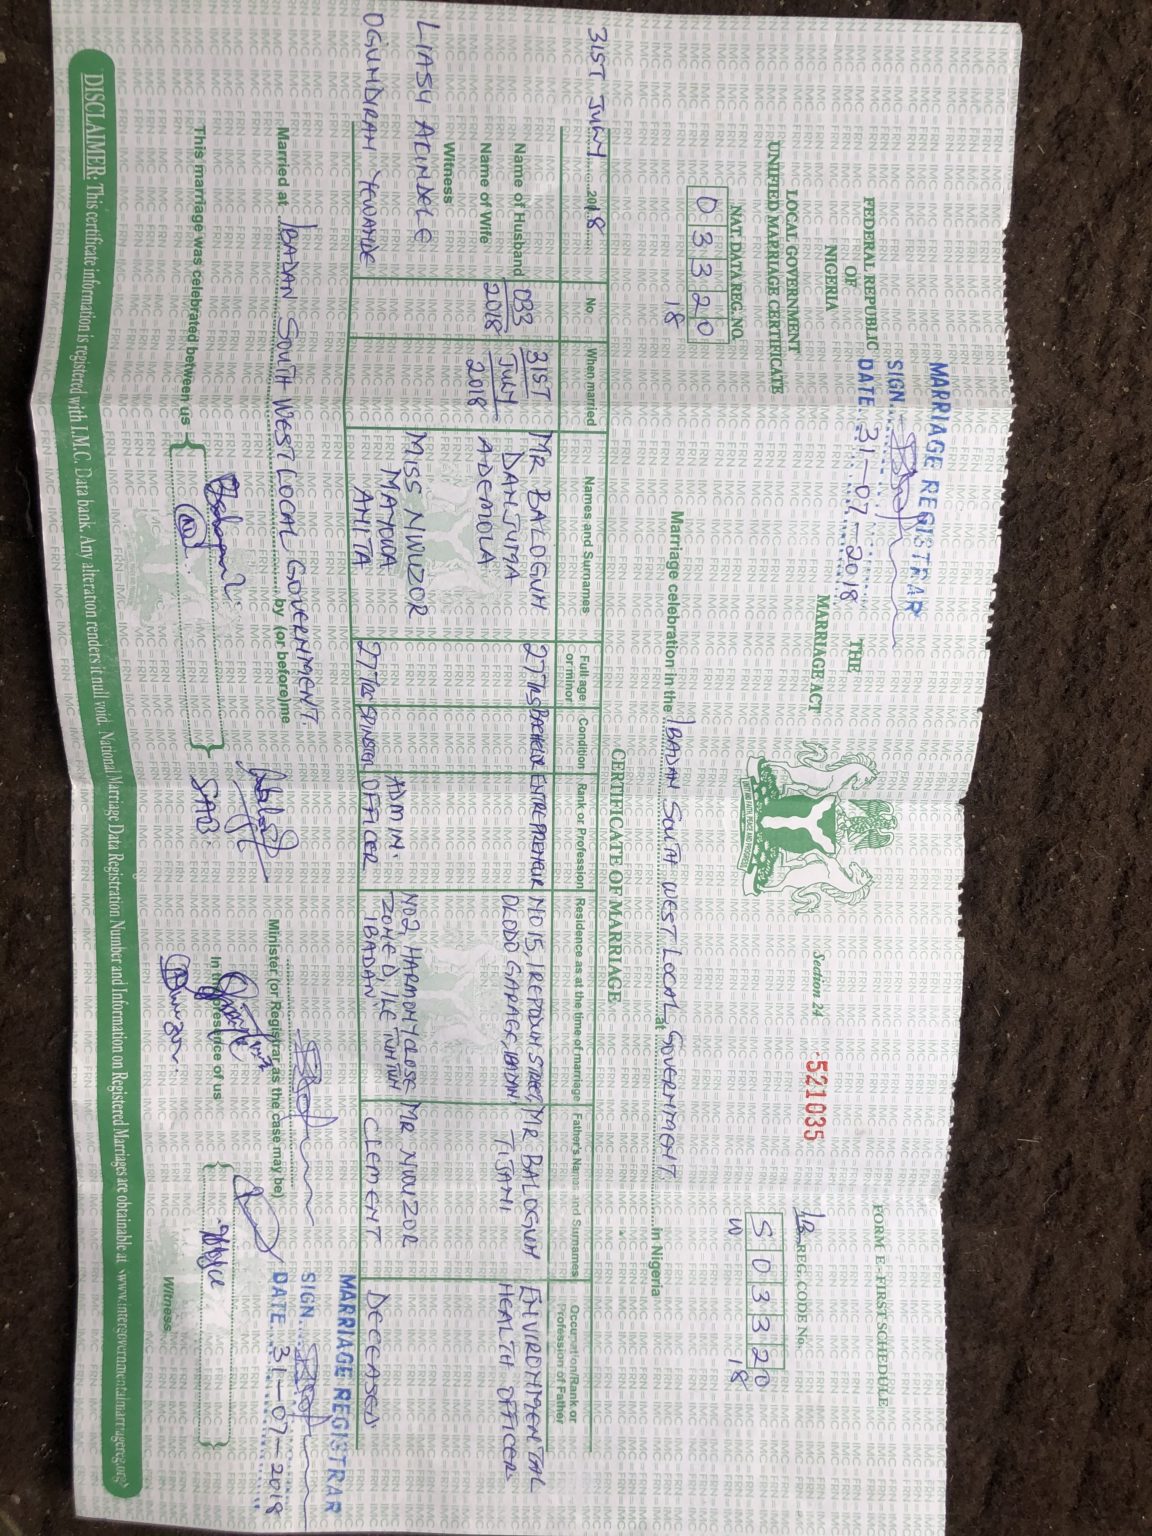 MARRIAGE REGISTRAR
SIGN
DATE 31-07-2018
FEDERAL REPUBLIC
OF
NIGERIA
THE
MARRIAGE ACT
Section 24
521035
FORM E - FIRST SCHEDULE
LOCAL GOVERNMENT
UNIFIED MARRIAGE CERTIFICATE
REG. CODE No.
S 0 3 3 2 0
W 18
NAT. DATA REG. NO.
0 3 3 2 0
18
Marriage celebration in the IBADAN SOUTH WEST LOCAL GOVERNMENT at in Nigeria
CERTIFICATE OF MARRIAGE
31ST JULY 2018
No When married Names and Surnames Full age or minor Condition Rank or Profession Residence as at the time of marriage Father's Name and Surnames Occupation/Rank or Profession of Father
Name of Husband
Name of Wife
Witness
033
2018
31ST
JULY
2018
MR BALOGUN
DANJUMA
ADEMOLA
27YRS BACHELOR ENTREPRENEUR
NO 15, IREPODUN STREET,
OLODO GARAGE, IBADAN
MR BALOGUN
TIJANI
ENVIRONMENTAL
HEALTH OFFICER
LIASU AKINDELE
OGUNDIRAN YEWANDE
MISS NWUZOR
MAYOWA
ANITA
27YRS SPINSTER
ADMIN.
OFFICER
NO 2, HARMONY CLOSE
ZONE D, IKE TUNTUN
IBADAN
MR NWUZOR
CLEMENT
DECEASED
Married at IBADAN SOUTH WEST LOCAL GOVERNMENT. by (or before) me
MARRIAGE REGISTRAR
SIGN
DATE 31-07-2018
Minister (or Registrar as the case may be)
This marriage was celebrated between us
In the presence of us
Witness
DISCLAIMER: This certificate information is registered with I.M.C. Data bank. Any alteration renders it null void. National Marriage Data Registration Number and Information on Registered Marriages are obtainable at <www.intergovernmentalmarriagereg.org>